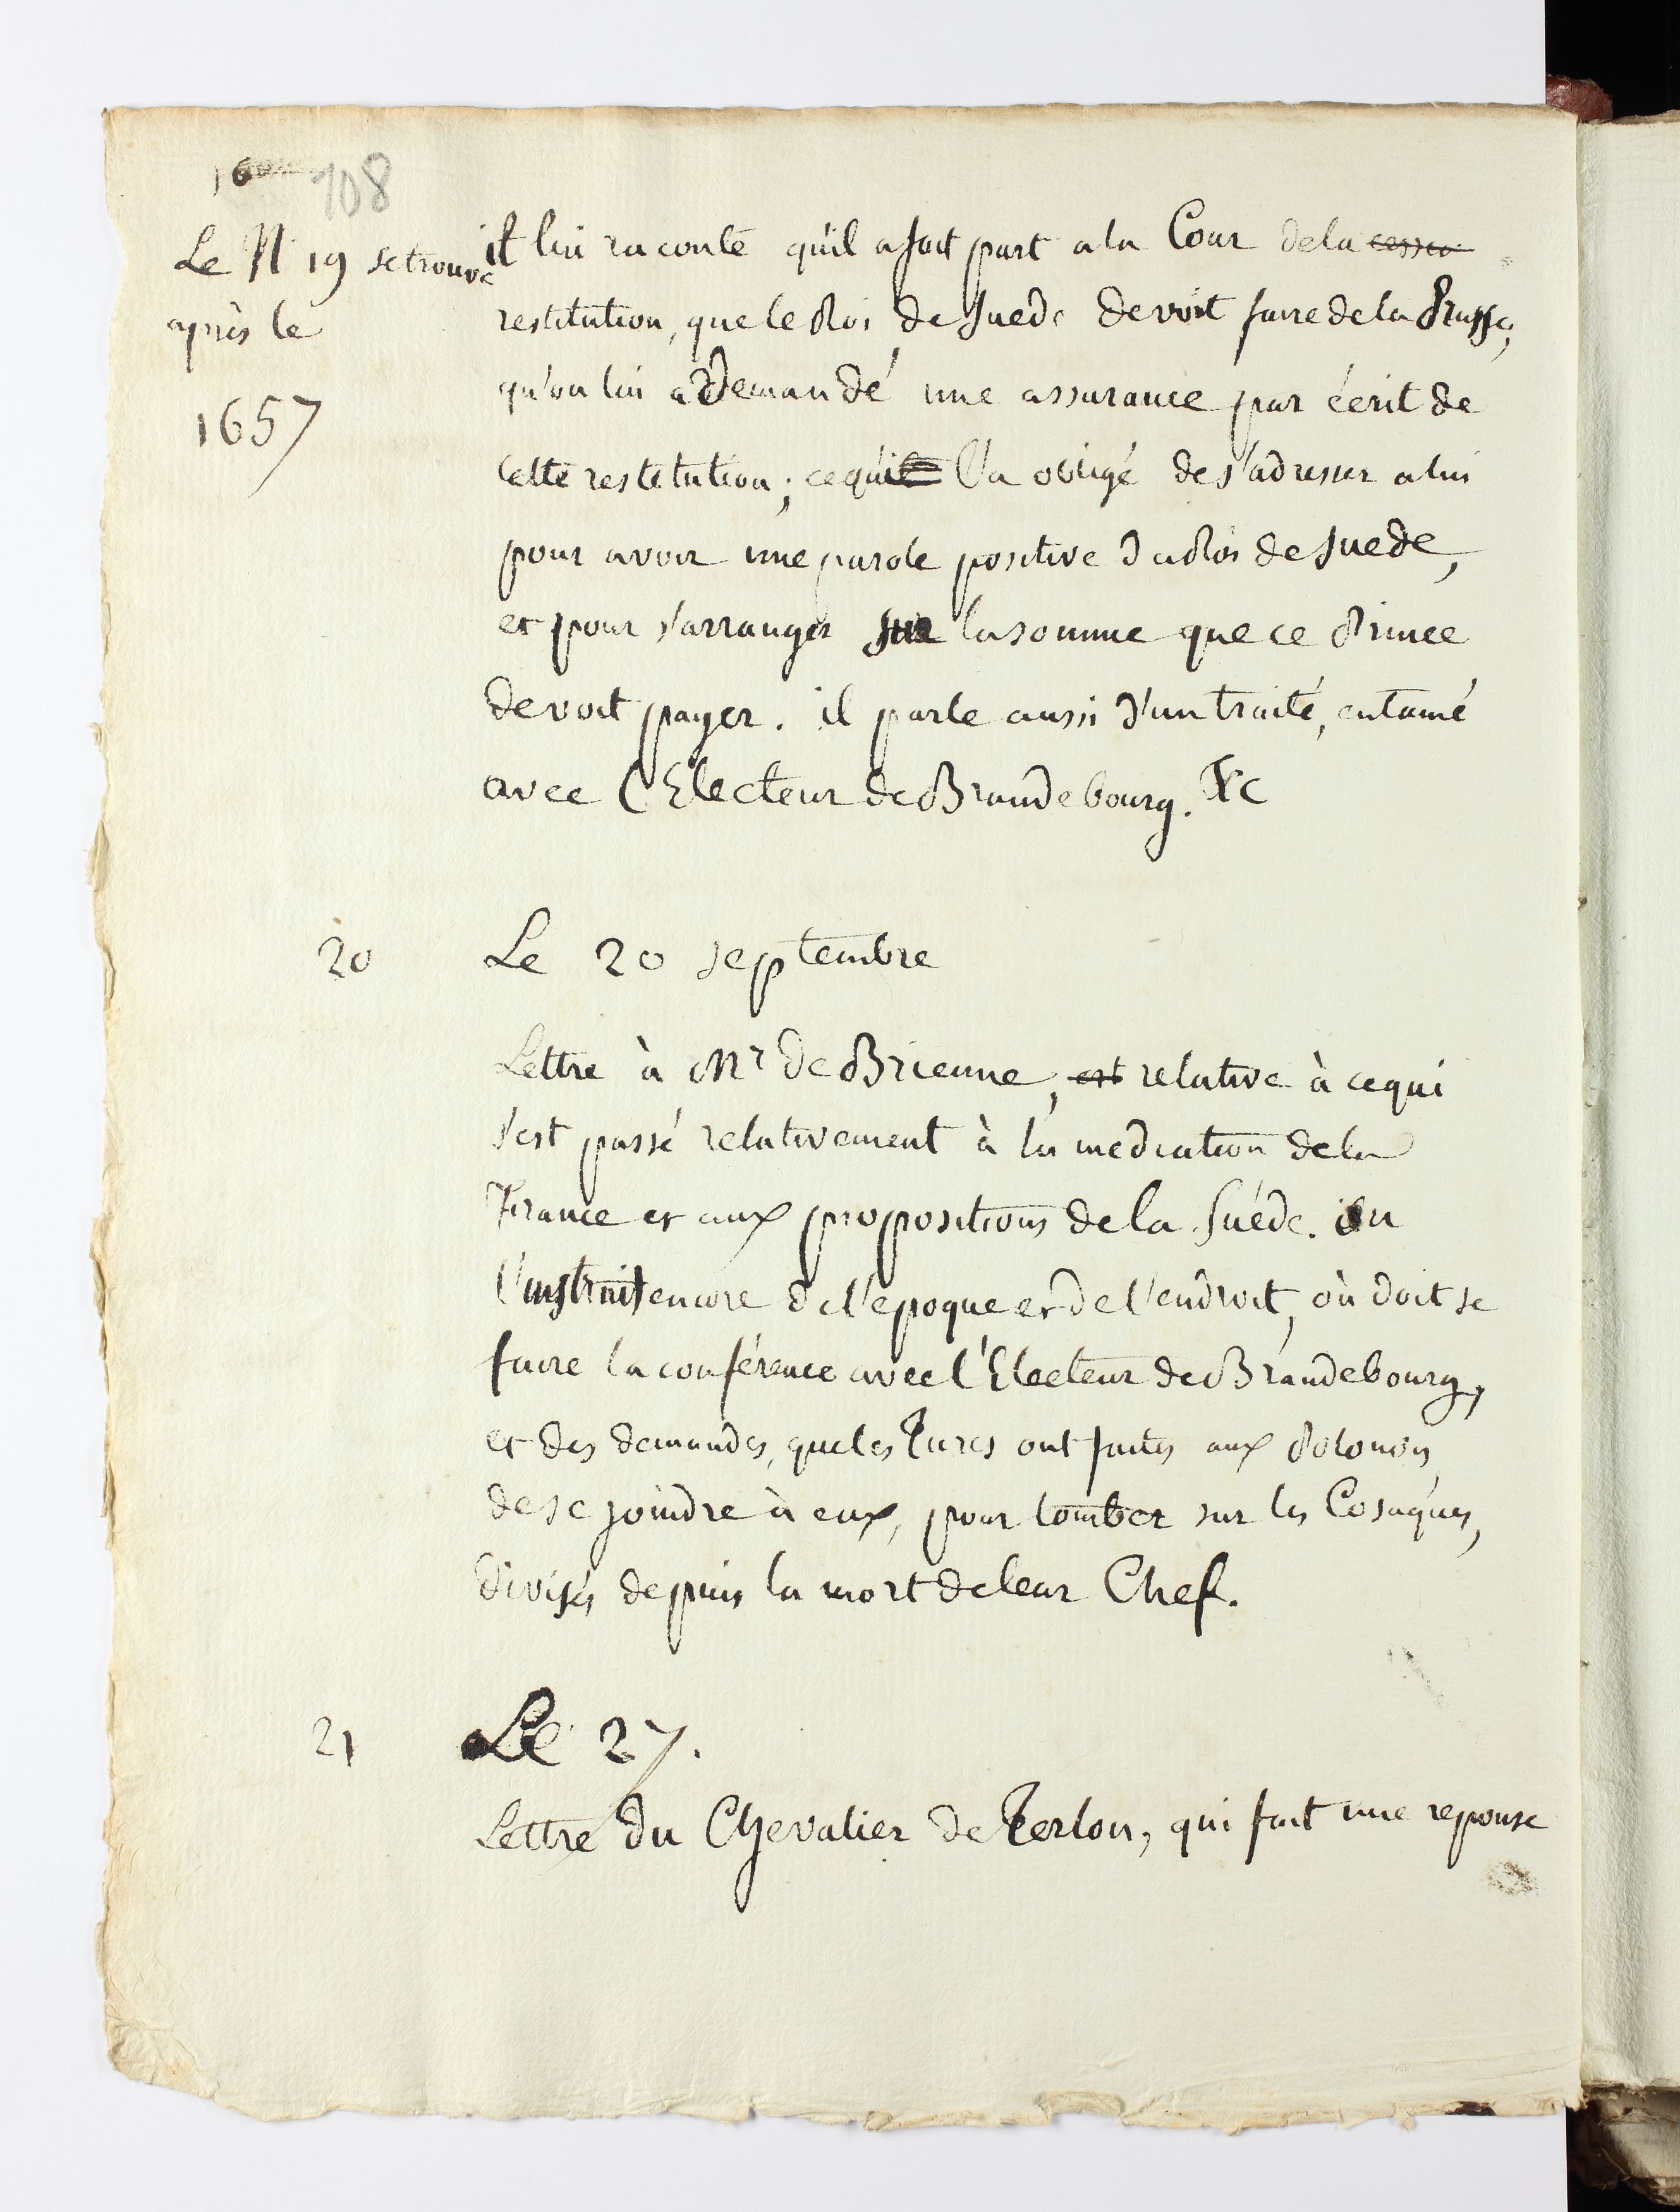 108
Le N 19 se trouve
après le
1657
il lui raconte qu'il a fait part a la Cour de la cessio
restitution, que le Roi de Suede devoit faire de la Prusse,
qu'on lui a demandé une assurance par écrit de
cette restitution; ce qui l'a obligé de s'adresser a lui
pour avoir une parole positive du Roi de Suede,
et pour s'arranger sur la somme que ce Prince
devoit payer. il parle aussi d'un traité, entamé
avec l'Electeur de Brandebourg. &c
20 Le 20 septembre
Lettre à Mr de Brienne, est relative à ce qui
s'est passé relativement à la mediation de la
France et aux propositions de la Suéde. on
l'instruit encore de l'epoque et de l'endroit, où doit se
faire la conférence avec l'Electeur de Brandebourg,
et des demandes, que les Turcs ont faites aux Polonois
de se joindre à eux, pour tomber sur les Cosaques,
divisés depuis la mort de leur Chef.
21 Le 27.
Lettre du Chevalier de Terlon, qui fait une reponse